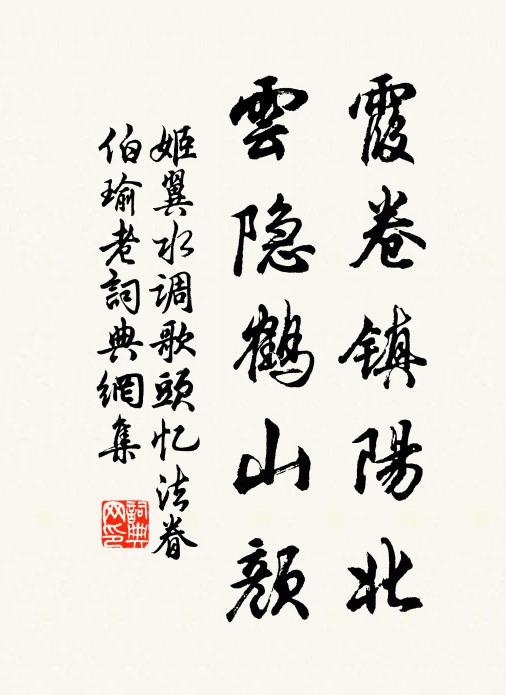 霞卷镇陽北
雲隐鹤山顏
姬翼水调歌頭忆法眷
伯瑜老詞典網集
詞典
网印